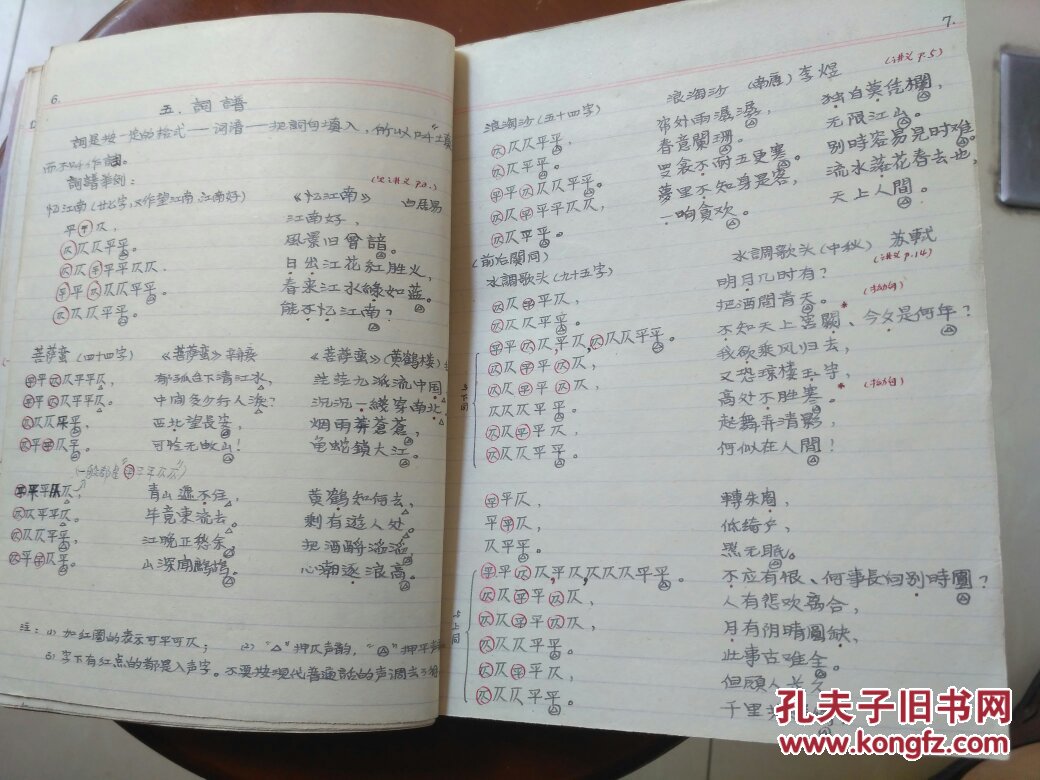 6.
五. 詞譜
詞是按一定的格式——词谱——把詞句填入，所以叫“填
而不叫作詞。
詞譜举例：
(见讲义 p.2.)
忆江南(廿七字，又作望江南，江南好) 《忆江南》 白居易
平㊥仄， 江南好，
仄仄仄平平。 風景旧曾諳。
仄仄平平平仄仄， 日出江花紅胜火，
平平仄仄仄平平。 春来江水綠如蓝。
仄仄仄平平。 能不忆江南？
菩萨蛮 (四十四字) 《菩萨蛮》辛弃疾 《菩萨蛮》(黄鹤楼)
平平仄仄平平仄， 郁孤台下清江水， 茫茫九派流中国，
平平仄仄平平仄。 中间多少行人泪？ 沉沉一綫穿南北，
仄仄仄平平， 西北望長安， 烟雨莽蒼蒼，
仄平平仄平。 可怜无数山！ 龟蛇鎖大江。
(一般都是“平平平仄仄”)
平平平仄仄， 青山遮不住， 黄鹤知何去，
仄仄平平仄。 毕竟東流去。 剩有遊人处。
仄仄仄平平， 江晚正愁余， 把酒酹滔滔，
仄平平仄平。 山深闻鷓鴣。 心潮逐浪高。
注：(1) 加紅圈的表示可平可仄； (2) “△”押仄声韵，“Ⓐ”押平声
(3) 字下有紅点的都是入声字。不要按現代普通話的声调去
7.
(讲义 p.5)
浪淘沙(五十四字) 浪淘沙 (南唐) 李煜
仄仄仄平平， 帘外雨潺潺， 独自莫凭欄，
仄仄平平。 春意闌珊。 无限江山。
平平仄仄仄平平。 罗衾不耐五更寒。 别時容易見时难。
仄仄平平平仄仄， 夢里不知身是客， 流水落花春去也，
仄仄平平。 一晌貪欢。 天上人間。
(前后闋同)
水調歌头(九十五字) 水調歌头(中秋) 苏軾
(讲义 p.14)
仄仄平平仄， 明月几时有？
仄仄仄平平。 把酒問青天。
(拗句)
平平仄仄平仄，仄仄仄平平。 不知天上宫闕、今夕是何年？
仄仄平平仄仄， 我欲乘风归去，
仄仄平平仄仄， 又恐琼楼玉宇，
(拗句)
仄仄仄平平。 高处不胜寒。
仄仄平平仄， 起舞弄清影，
仄仄仄平平。 何似在人間！
与下同
平平仄， 轉朱閣，
平平仄， 低綺户，
仄平平。 照无眠。
平平仄仄，平仄仄仄仄平平。 不应有恨、何事長向别時圓？
仄仄平平仄仄， 人有悲欢离合，
仄仄平平仄仄， 月有阴晴圓缺，
仄仄仄平平。 此事古难全。
仄仄平平仄， 但願人长久，
仄仄仄平平。 千里
与上同
孔夫子旧书网
www.kongfz.com